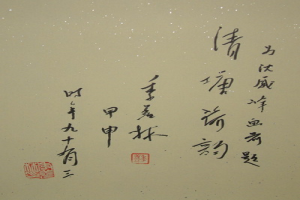 为沈威峰画展题
清塘荷韵
季羡林
甲申
时年九十有三